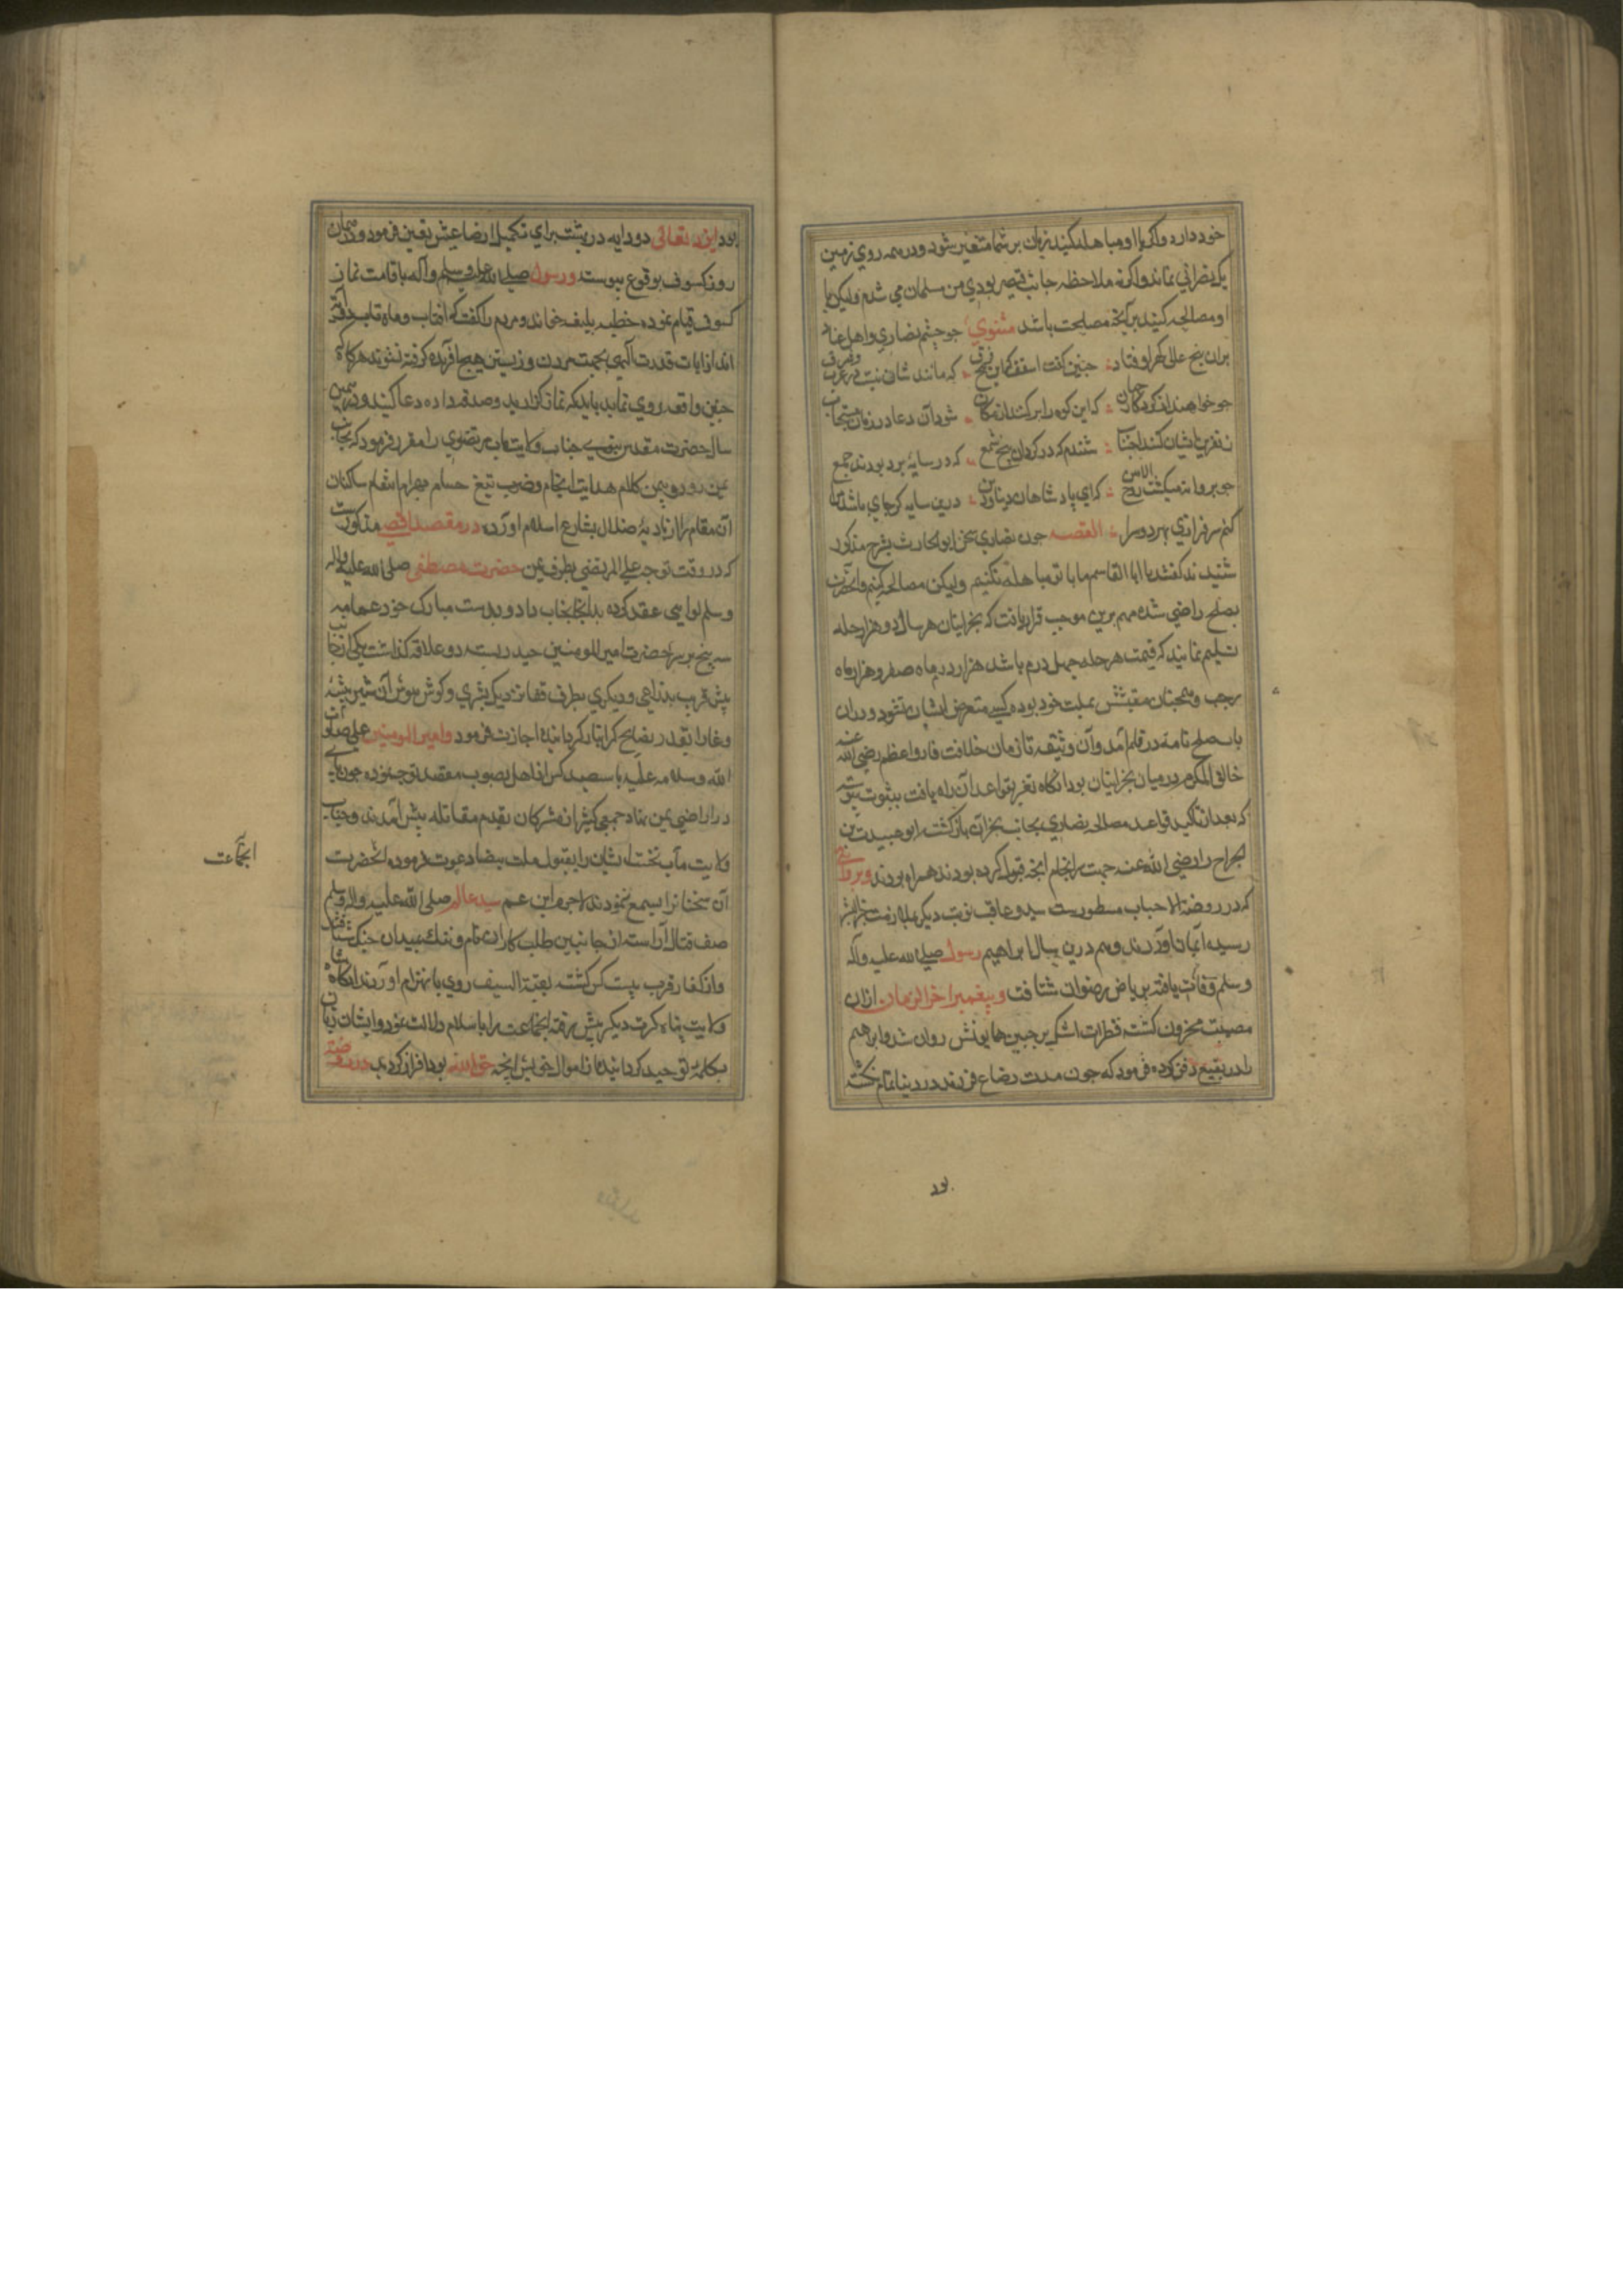 خود دارد واکر با او مباهله کنید زمان بر شما متغیر شود و در همه روی زمین
یک نصرانی نماند واکر نه ملاحظه جانب قیصر بودی من مسلمان می شدم ولیکن با
او مصالحه کنید هر آینه مصلحت باشد مثنوی جو جشم نصاری واهل عناد
بران پنج عالی کهر اوفتاد جنین کفت اسقف که این پنج که مانند شان نیست در غرب
جو خواهند از کردکار جهان که این کوه را بر کند از مکان شود آن دعا در زمان مستجاب
ز نفرین ایشان کنید اجتناب شنیدم که در کرد آن پنج شمع که در سایه برد بودند جمع
جو پروانه میکشت روح الامین که ای پادشاهان دنیا و دین درین سایه کر جای باشد مرا
کنم سرفرازی بهر دو سرا القصه جون نصاری سخن ابو الحارث بشرح مذکور
شنیدند کفتند یا ابا القاسم ما با تو مباهله نکنیم ولیکن مصالحه کنیم وآنحضرت
بصلح راضی شده مهم برین موجب قرار یافت که نجرانیان هر سال دو هزار حله
تسلیم نمایند که قیمت هر حله جهل درم باشد هزار در ماه صفر و هزار در ماه
رجب و همجنان بملت خود بوده کسی متعرض ایشان نشود و دران
باب صلح نامه در قلم آمد وآن وثیقه تا زمان خلافت فاروق اعظم رضی الله عنه
در میان نجرانیان بود آنکاه تغیر بقواعد آن راه یافت بثبوت پیوسته
که بعد از تاکید قواعد مصالحه نصاری بجانب نجران بازکشته ابو عبیدة بن
الجراح را رضی الله عنه جهت سرانجام آنچه قبول کرده بودند همراه بردند وبروایتی
که در روضة الاحباب مسطورست سید و عاقب نوبت دیکر بملازمت خیر البشر
رسیده ایمان آوردند وهم درین سال ابراهیم رسول صلی الله علیه وآله
وسلم وفات یافته بریاض رضوان شتافت و پیغمبر اخر الزمان ازان
مصیبت محزون کشته قطرات اشک بر جبین همایونش روان شد وابراهیم
را در بقیع دفن کرده فرمود که جون مدت رضاع فرزندم در دنیا تمام نکشته
بود
بود ایزد تعالی دو دایه در بهشت برای تکمیل ارضاعش تعین فرمود ودر همان
روز کسوف بوقوع پیوست ورسول صلی الله علیه وسلم وآله باقامت نماز
کسوف قیام نموده خطبه بلیغ خواند ومردم را کفت که آفتاب وماهتاب دو آیت
اند از آیات قدرت الهی بجهت مردن وزیستن هیچ آفریده کرفته نشوند هرکاه
جنین واقعه روی نماید باید که نماز کزارید وصدقه داده دعا کنید ودر همین
سال حضرت مقدس نبوی جناب ولایت مآب مرتضوی را مقرر فرمود که بجانب
یمن رود و بیمن کلام هدایت انجام وضرب تیغ حسام بهرام انتقام ساکنان
آن مقام را از بادیه ضلال بشارع اسلام آورد در مقصد اقصی مذکورست
که در وقت توجه علی المرتضی بطرف یمن حضرت مصطفی صلی الله علیه واله
وسلم لوایی عقد کرده بدانجناب داد وبدست مبارک خود عمامه
سه پیچ بر سر حضرت امیر المومنین حیدر بسته دو علاقه کذاشت یکی از جانب
پیش قریب بذراعی ودیکری بطرف قفا نزدیک بشبری وکوش هوش آن شیر بیشه
وغا را بدرر نصایح کرانبار کردانیده اجازت فرمود وامیر المومنین علی صلوات
الله وسلامه علیه با سیصد کس از اهل بصوب مقصد توجه نموده جون بای
در اراضی یمن نهاد جمعی کثیر از مشرکان بقدم مقاتله پیش آمدند وجناب
ولایت مآب نخست ایشان را بقبول ملت بیضا دعوت فرموده آنحضرت
آن سخنانرا بسمع ننمودند لاجرم ابن عم سید عالم صلی الله علیه واله وسلم
صف قتال آراسته از جانبین طلب کاران نام وننک بمیدان جنک شتافتند
واز کفار قریب بیست کس کشته بقیة السیف روی بانهزام آوردند آنکاه شاه
ولایت پناه کرت دیکر پیش رفته آنجماعت را باسلام دلالت نمود وایشان زبان
بکلمه توحید کردانیده از اموال خویش آنچه حق الله بود افراز کردند در روضة
آنجماعت